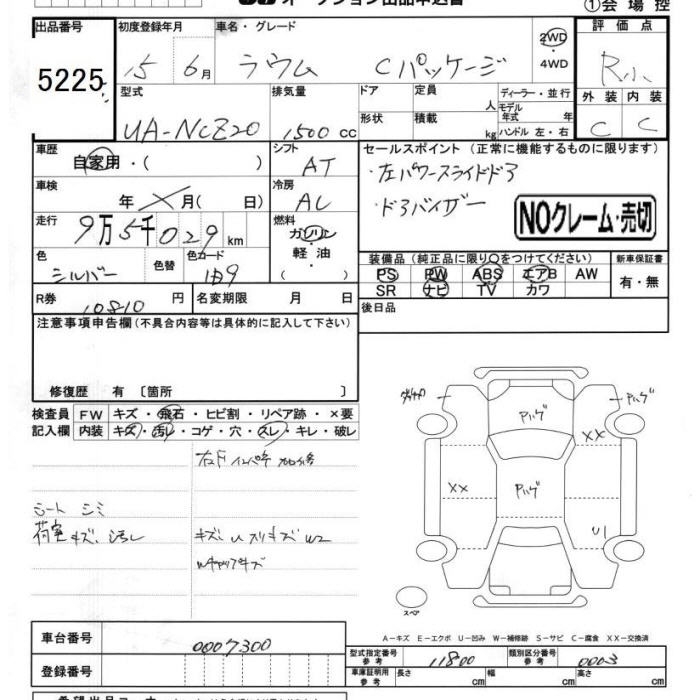 オークション出品申込書
①会場控
出品番号
5225
初度登録年月
15 6月
車名・グレード
ラウム Cパッケージ
2WD
・
4WD
評価点
R小
外装 内装
C C
型式
UA-NCZ20
排気量
1500 cc
ドア
形状
定員
人
積載
kg
ディーラー・並行
モデル
年式 年
ハンドル 左・右
車歴
自家用・( )
シフト
AT
セールスポイント (正常に機能するものに限ります)
・左パワースライドドア
・ドアバイザー
NOクレーム・売切
車検
年 × 月( 日)
冷房
AC
走行
9万5千029 km
燃料
ガソリン
軽油
( )
色
シルバー
色替
色コード
1B9
装備品 (純正品に限り○をつけてください)
新車保証書
PS PW ABS エアB AW
SR ナビ TV カワ
有・無
R券
10810 円
名変期限 月 日
後日品
注意事項申告欄 (不具合内容等は具体的に記入して下さい)
修復歴 有 〔箇所 〕
検査員
記入欄
FW キズ・飛石・ヒビ割・リペア跡・×要
内装 キズ・汚レ・コゲ・穴・スレ・キレ・破レ
シート シミ
荷室キズ、汚レ
Wキャップキズ
Pハゲ
Pハゲ
Pハゲ
XX
XX
U1
スペア
A-キズ E-エクボ U-凹み W-補修跡 S-サビ C-腐食 XX-交換済
車台番号
0007300
登録番号
型式指定番号
参考
11800
類別区分番号
参考
0003
車庫証明用
参考
長さ 幅 高さ
希望出品コーナー